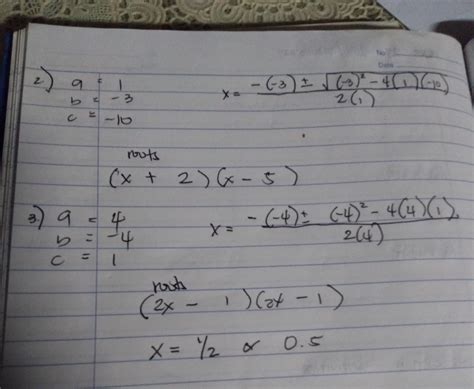 No
Date
2) a = 1
b = -3
c = -10
x = -(-3) ± √(-3)² - 4(1)(-10) / 2(1)
roots
(x + 2)(x - 5)
3) a = 4
b = -4
c = 1
x = -(-4) ± (-4)² - 4(4)(1) / 2(4)
roots
(2x - 1)(2x - 1)
x = 1/2 or 0.5